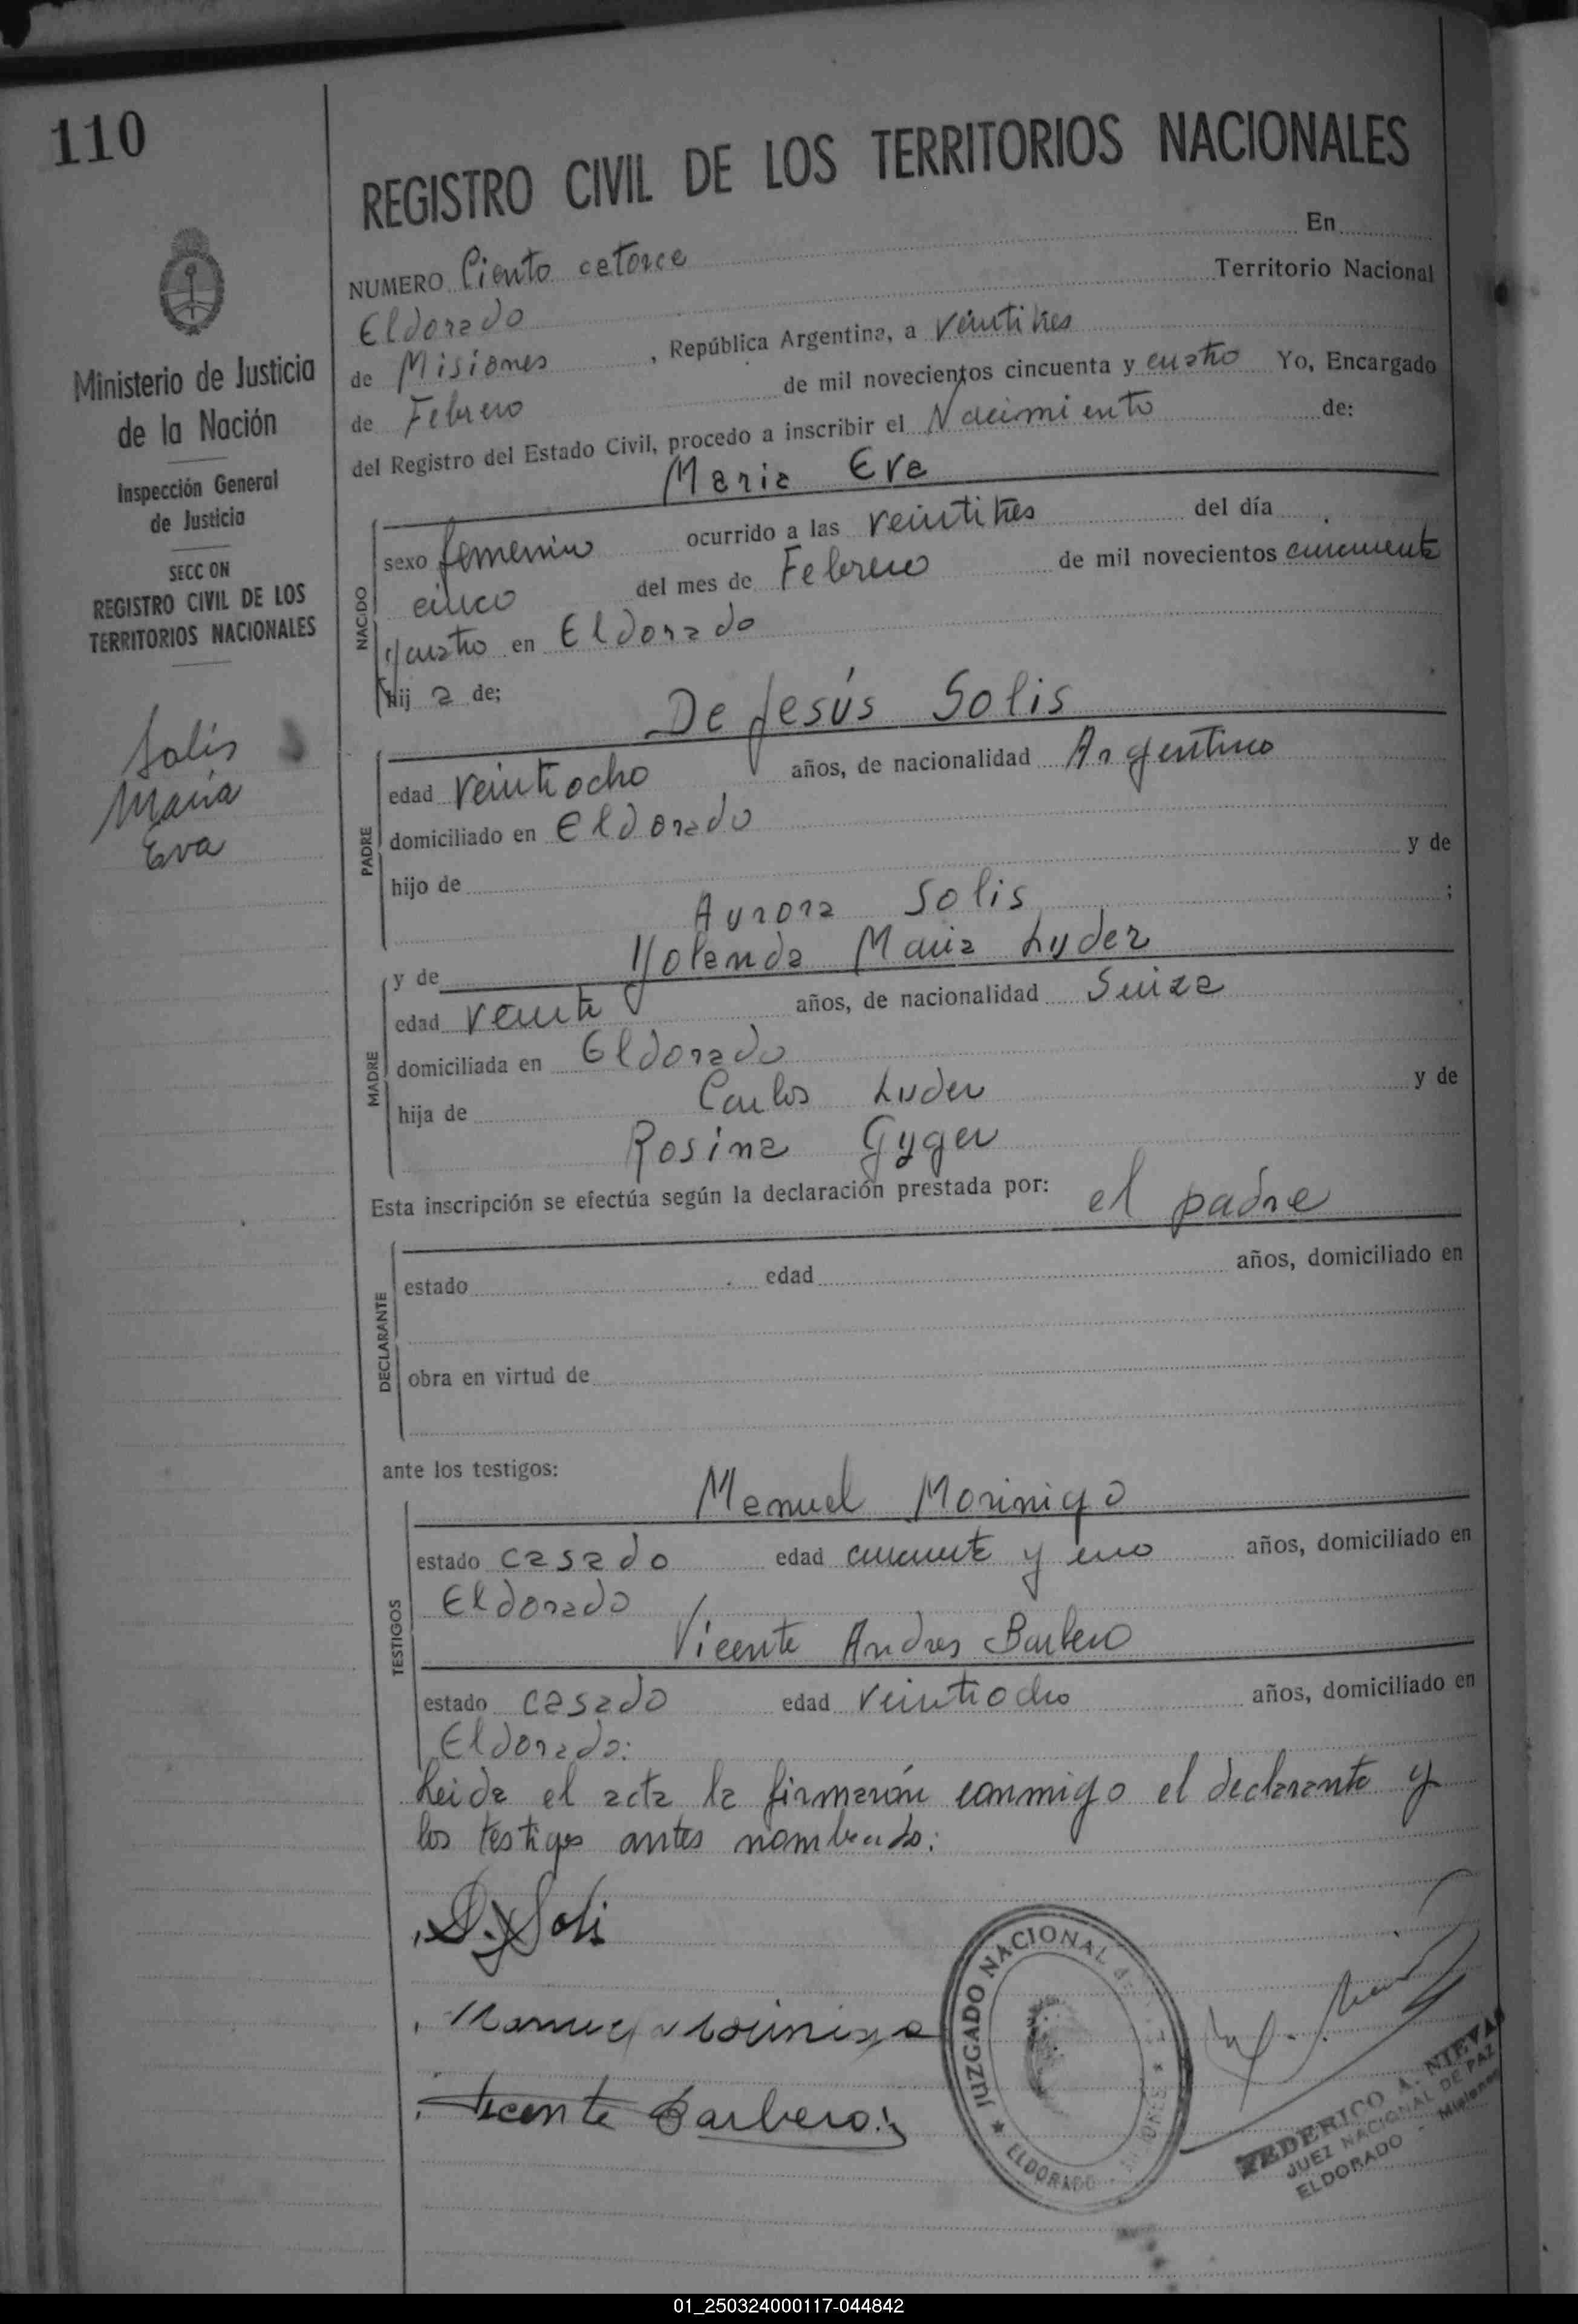 110
REGISTRO CIVIL DE LOS TERRITORIOS NACIONALES
NUMERO Ciento catorce En
Eldorado Territorio Nacional
de Misiones, República Argentina, a veintitres
de Febrero de mil novecientos cincuenta y cuatro Yo, Encargado
del Registro del Estado Civil, procedo a inscribir el Nacimiento de:
Maria Eva
NACIDO
sexo femenino ocurrido a las veintitres del día
cinco del mes de Febrero de mil novecientos cincuenta
y cuatro en Eldorado
hij a de:
De Jesús Solis
PADRE
edad veintiocho años, de nacionalidad Argentino
domiciliado en Eldorado
hijo de y de
Aurora Solis ;
MADRE
y de Yolanda Maria Luder
edad veinte años, de nacionalidad Suiza
domiciliada en Eldorado
hija de Carlos Luder y de
Rosina Gyger
Esta inscripción se efectúa según la declaración prestada por: el padre
DECLARANTE
estado edad años, domiciliado en
obra en virtud de
ante los testigos:
Manuel Morinigo
TESTIGOS
estado casado edad cincuenta y uno años, domiciliado en
Eldorado
Vicente Andres Barbero
estado casado edad veintiocho años, domiciliado en
Eldorado:
Leida el acta la firmarón conmigo el declarante y
los testigos antes nombrado:
D. J Soli
Manuel Morinigo
Vicente Barbero
JUZGADO NACIONAL DE
ELDORADO
FEDERICO A. NIEVAS
JUEZ NACIONAL DE PAZ
ELDORADO - Misiones
Ministerio de Justicia
de la Nación
Inspección General
de Justicia
SECC ON
REGISTRO CIVIL DE LOS
TERRITORIOS NACIONALES
Solis
Maria
Eva
01_250324000117-044842